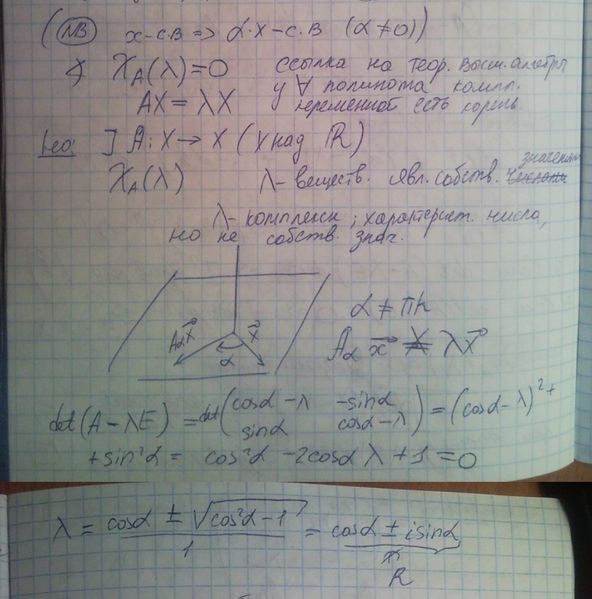 (NB x-с.в => α·x-с.в (α≠0))
χ_A(λ)=0 ссылка на теор. высш. алгебры
у ∀ полинома компл.
AX = λX переменной есть корень.
] A: X → X (X над R)
значением
χ_A(λ) λ-веществ. явл. собств.
λ-комплексн; характерист. число,
но не собств. знач.
α ≠ πk
A_α x⃗ x⃗ α
A_α x⃗ ≠ λx⃗
det(A-λE) = det(cosα-λ -sinα
sinα cosα-λ) = (cosα-λ)²+
+sin²α = cos²α -2cosα λ +1 =0
λ = (cosα ± √(cos²α-1))/1 = cosα ± i sinα
∉
R